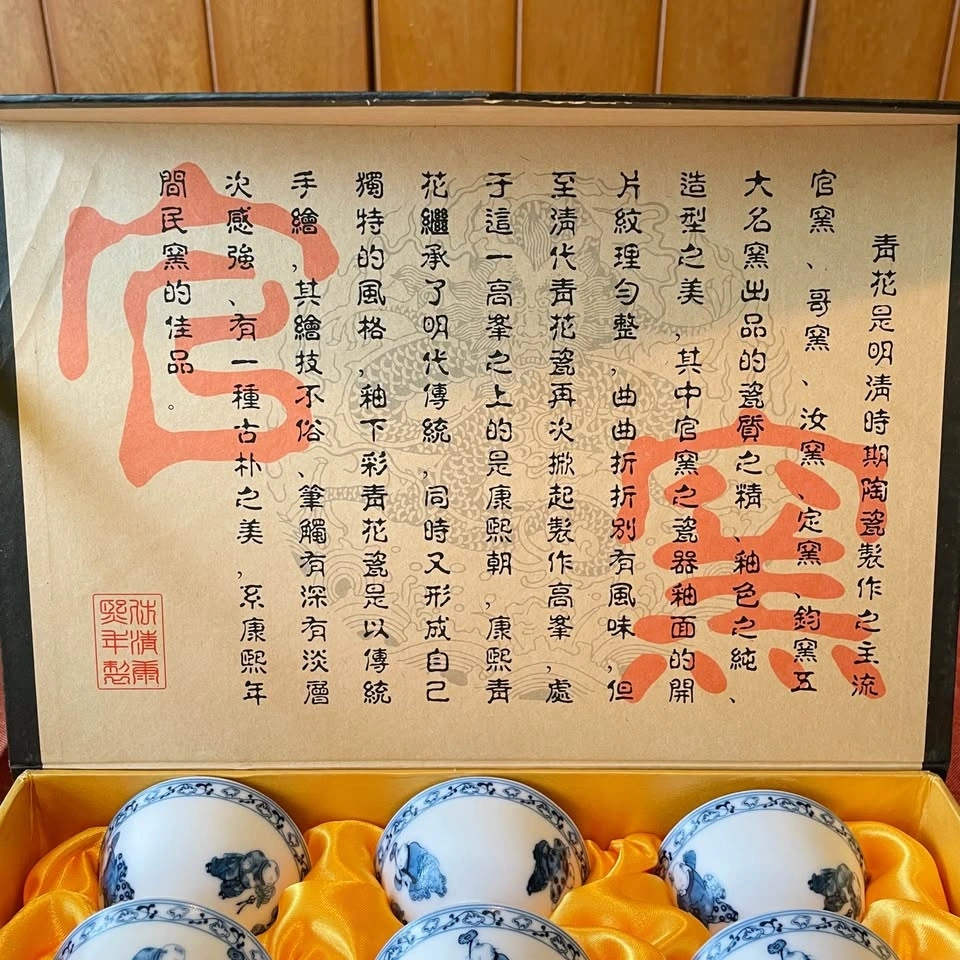 青花是明清時期陶瓷製作之主流
官窯、哥窯、汝窯、定窯、鈞窯五
大名窯出品的瓷質之精、釉色之純、
造型之美,其中官窯之瓷器釉面的開
片紋理勻整,曲曲折折別有風味,但
至清代青花瓷再次掀起製作高峯,處
于這一高峯之上的是康熙朝,康熙青
花繼承了明代傳統,同時又形成自己
獨特的風格,釉下彩青花瓷是以傳統
手繪,其繪技不俗、筆觸有深有淡層
次感強、有一種古朴之美,系康熙年
間民窯的佳品。
官窯